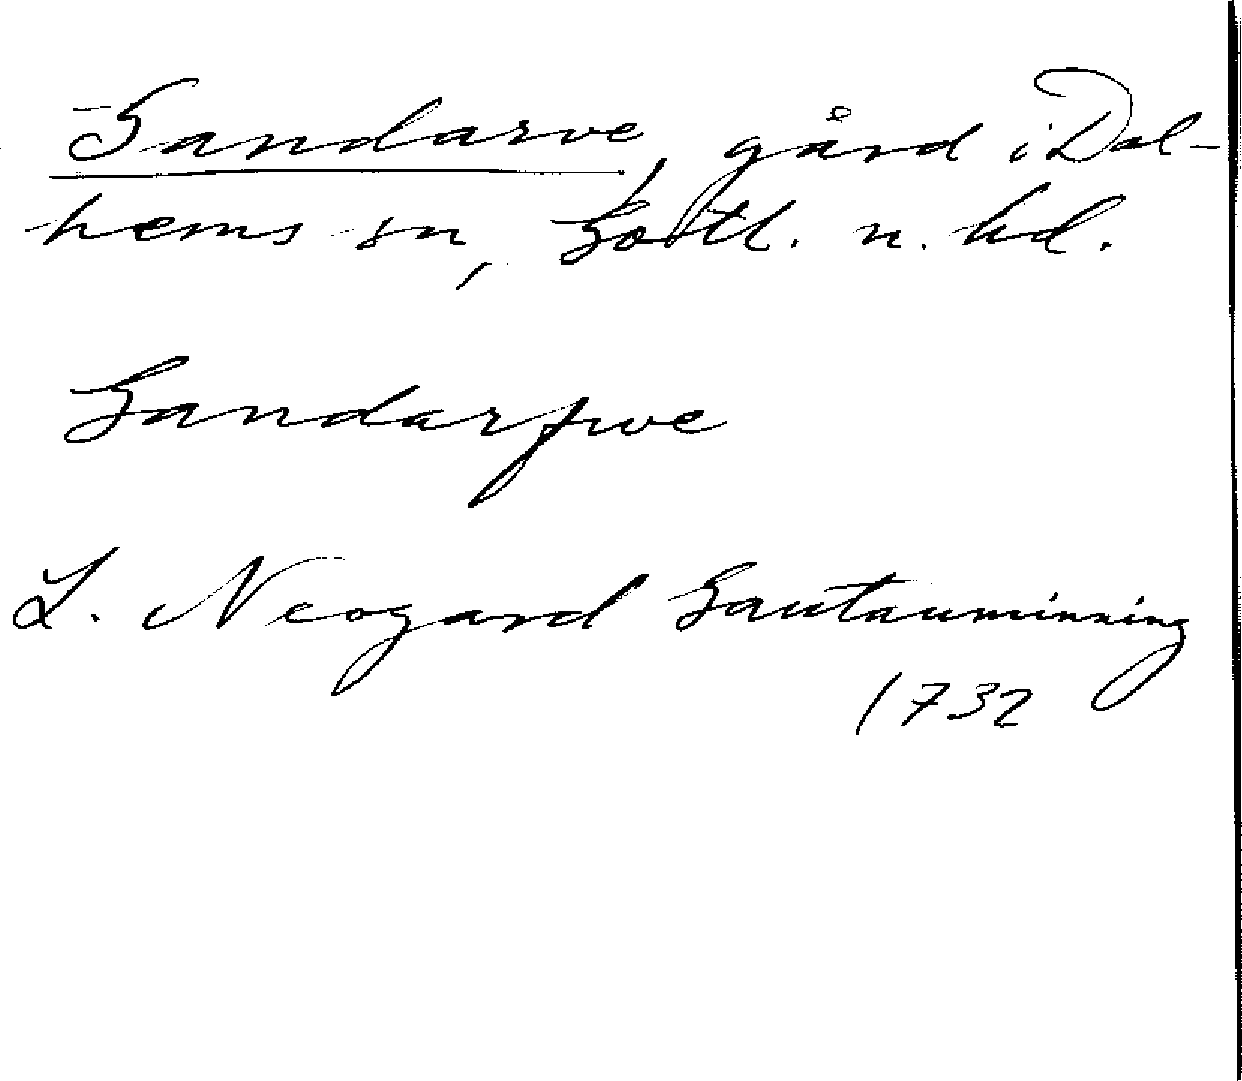 Gandarve, gård i Dal-
hems sn, Gotl. n. hd.
Gandarfwe
L. Neogard Gautauminning
1732